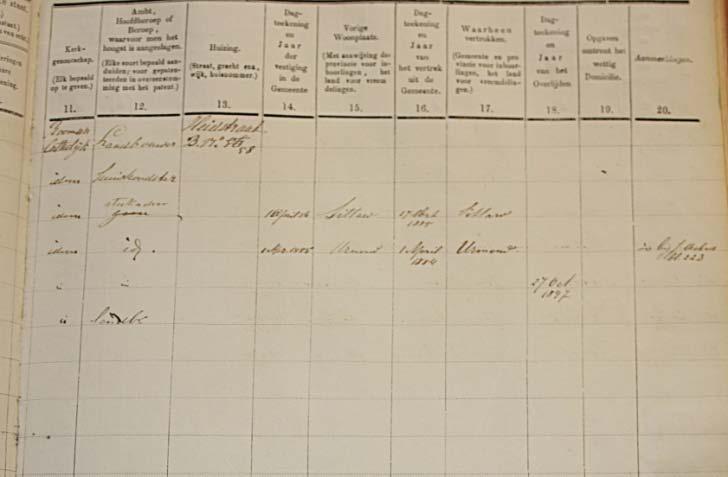 Kerk-
genootschap.
(Elk bepaald
op te geven.)
11.
Ambt,
Hoofdberoep of
Beroep,
waarvoor men het
hoogst is aangeslagen.
(Elke soort bepaald aan-
duiden; voor gepaten-
teerden in overeenstem-
ming met het patent.)
12.
Huizing.
(Straat, gracht enz.,
wijk, huisnommer.)
13.
Dag-
teekening
en
Jaar
der
vestiging
in de
Gemeente
14.
Vorige
Woonplaats.
(Met aanwijzing der
provincie voor in-
boorlingen, het
land voor vreem-
delingen.
15.
Dag-
teekening
en
Jaar
van
het vertrek
uit de
Gemeente.
16.
Waarheen
vertrokken.
(Gemeente en pro-
vincie voor inboor-
lingen, het land
voor vreemdelin-
gen.)
17.
Dag-
teekening
en
Jaar
van het
Overlijden
18.
Opgaven
omtrent het
wettig
Domicilie.
19.
Aanmerkingen.
20.
Roomsch Heidestraat
Catholijk Landbouwer B. No. 58
idem
idem Sittard 1885 Sittard
idem id. Urmond 1 April 1886 Urmond
27 Oct
1897